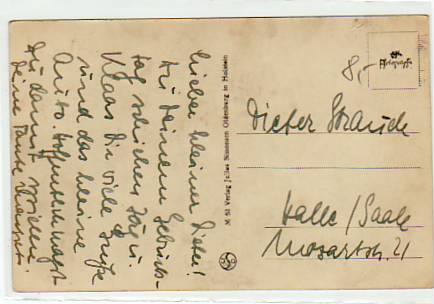 Lieber kleiner Dieter!
Zu Deinem Geburts-
tag schicken Tag u.
Klaas Dir viele Grüße
und das kleine
Auto. Hoffentlich magst
Du damit spielen.
Deine Tante
M 51 Verlag Julius Simonsen Oldenburg in Holstein
8,-
Dieter Strauch
Halle/Saale
Mozartstr. 21